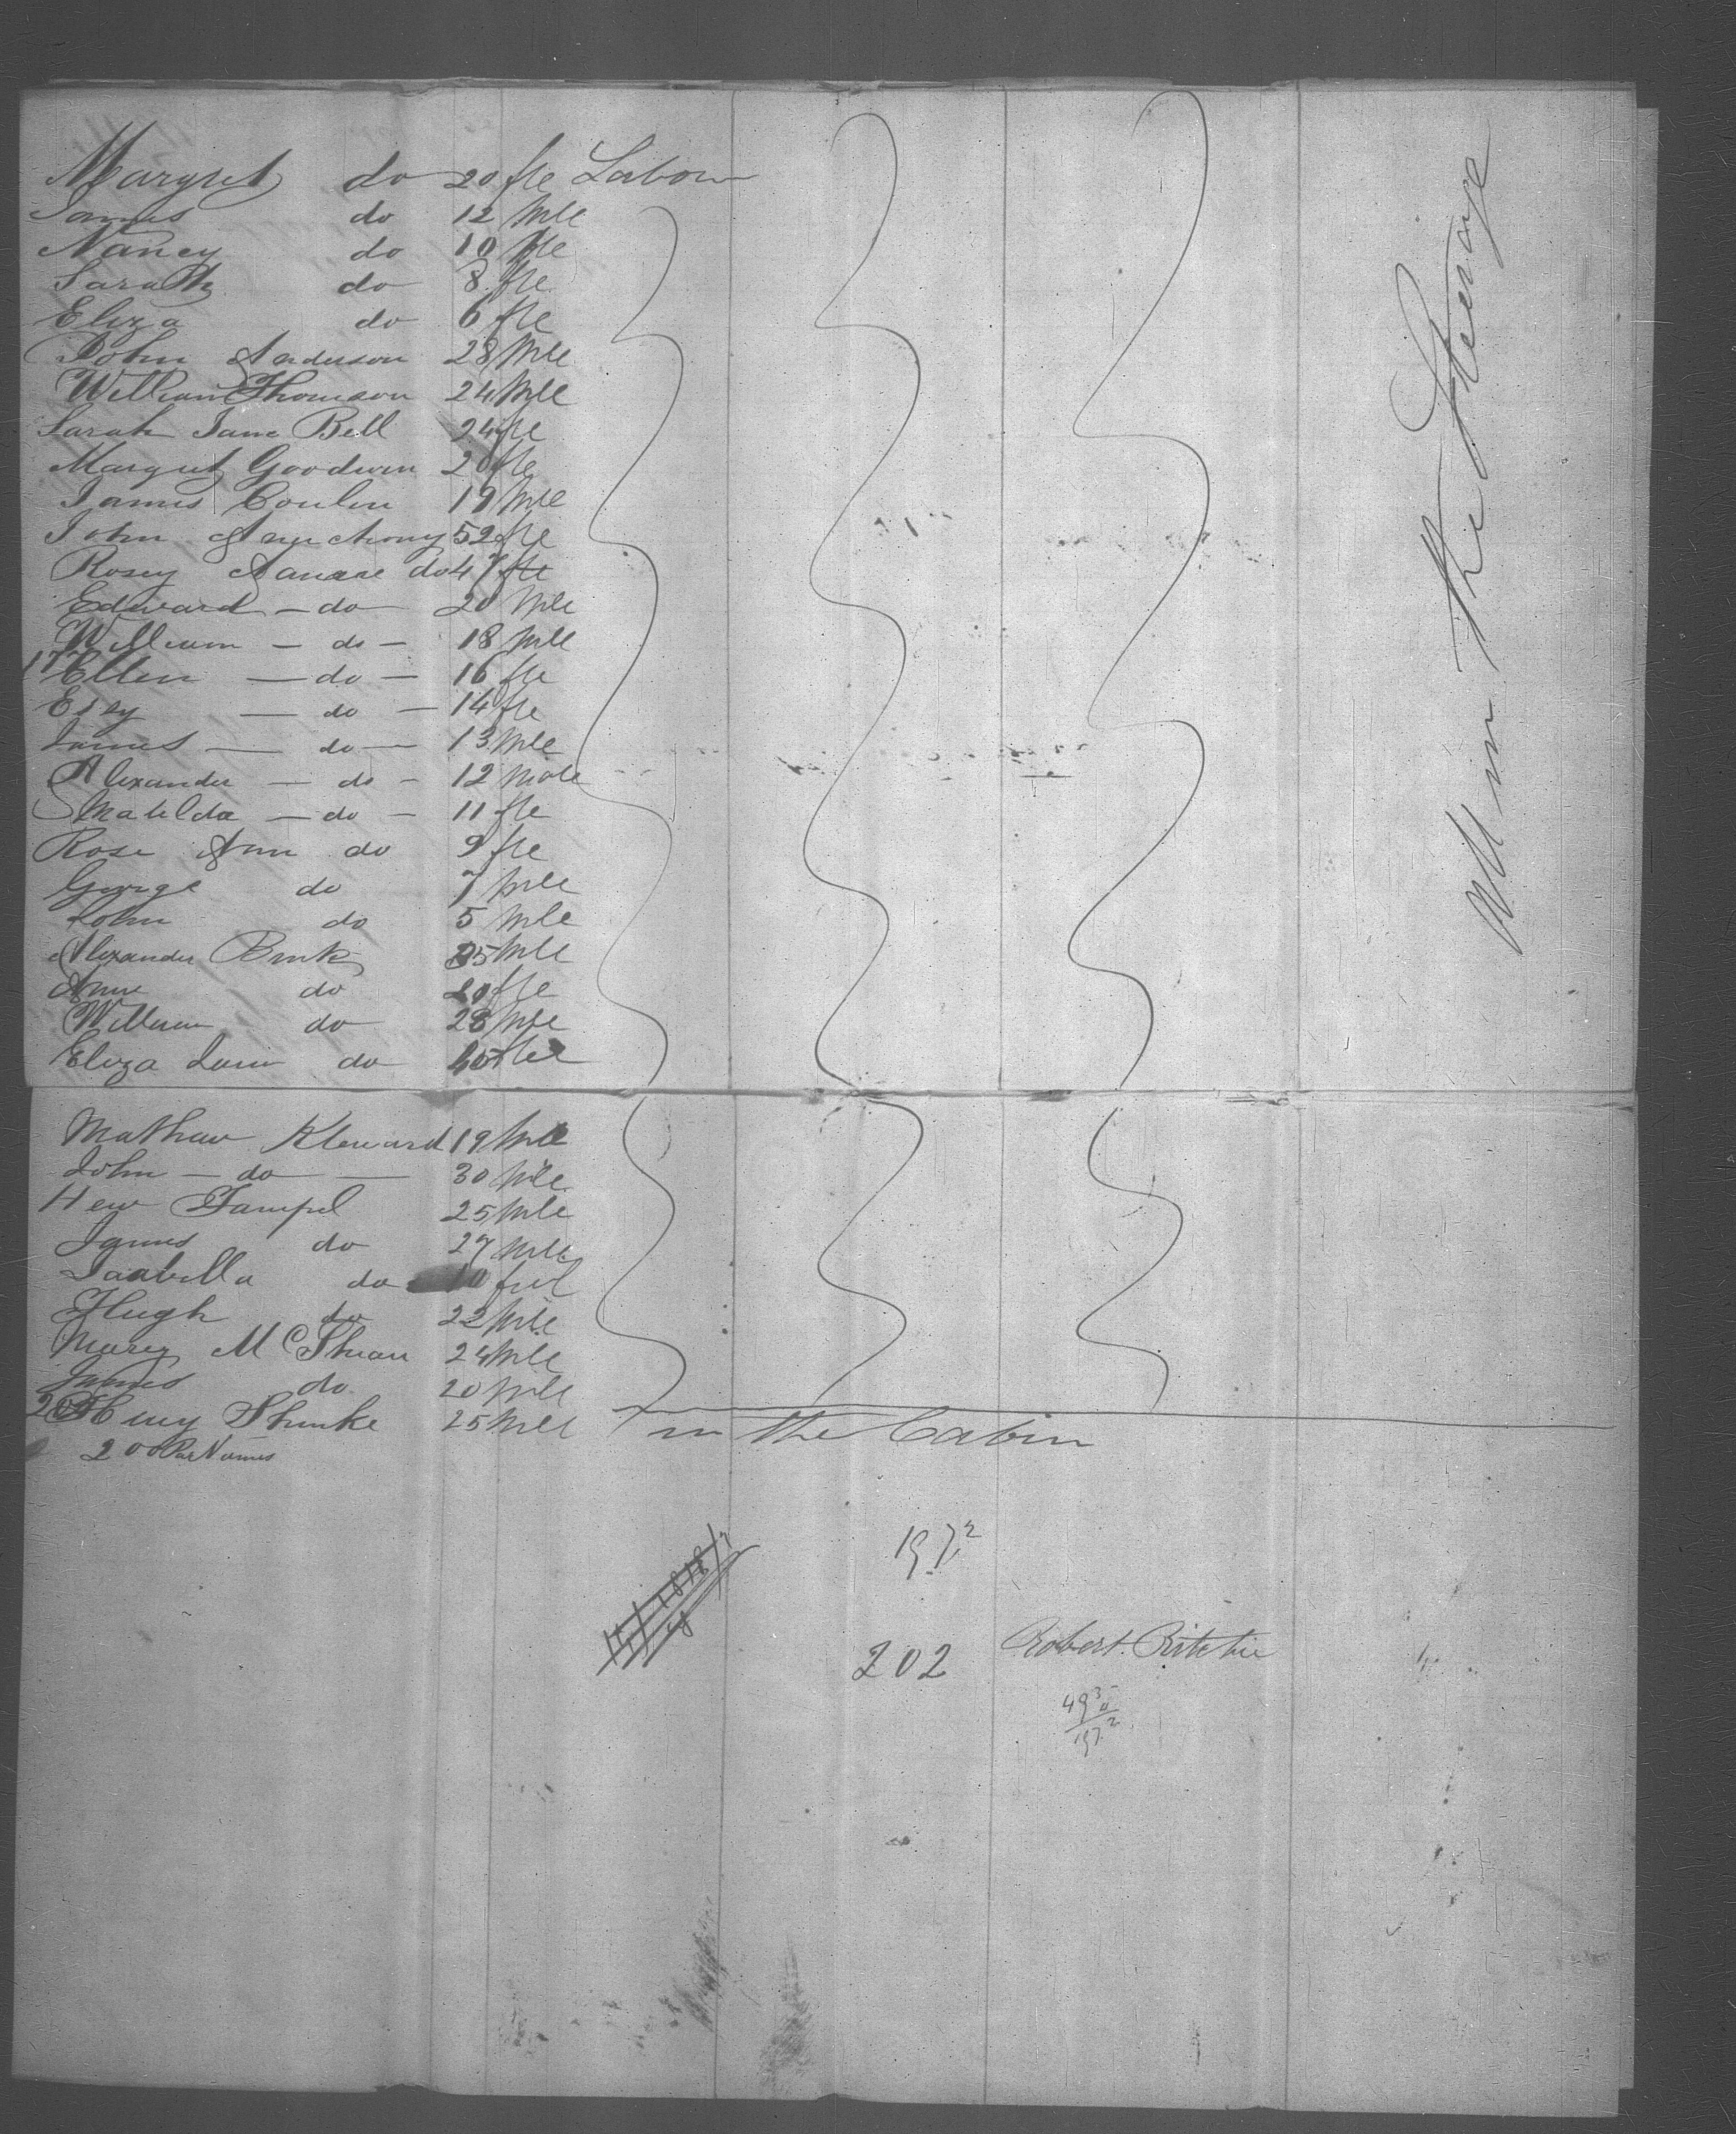 Margret do 20 fle Labour
James do 12 Mle
Nancy do 10 fle
Sarah do 8 fle
Eliza do 6 fle
John Anderson 28 Mle
William Thomson 24 Mle
Sarah Jane Bell 24 fle
Margret Goodwin 20 fle
James Coulin 19 Mle
John 52 fle
Rosey do 47 fle
Edward - do - 20 Mle
William - do - 18 Mle
177 Ellen - do - 16 fle
Esey - do - 14 fle
James - do - 13 Mle
Alexander - do - 12 Male
Matilda - do - 11 fle
Rose Ann do 9 fle
George do 7 Mle
John do 5 Mle
Alexander 35 Mle
Anne do 20 fle
William do 28 Mle
Eliza Jane do fle
Mathew 19 Mle
John - do - 30 Mle
Hew 25 Mle
James do 27 Mle
Isabella do 10
Hugh do 22 Mle
Mary 24 Mle
James do 20 Mle
Henry 25 Mle in the Cabin
200 Par Names
All in the Steerage
197.2
202 Robert Ritchie
493
197.2